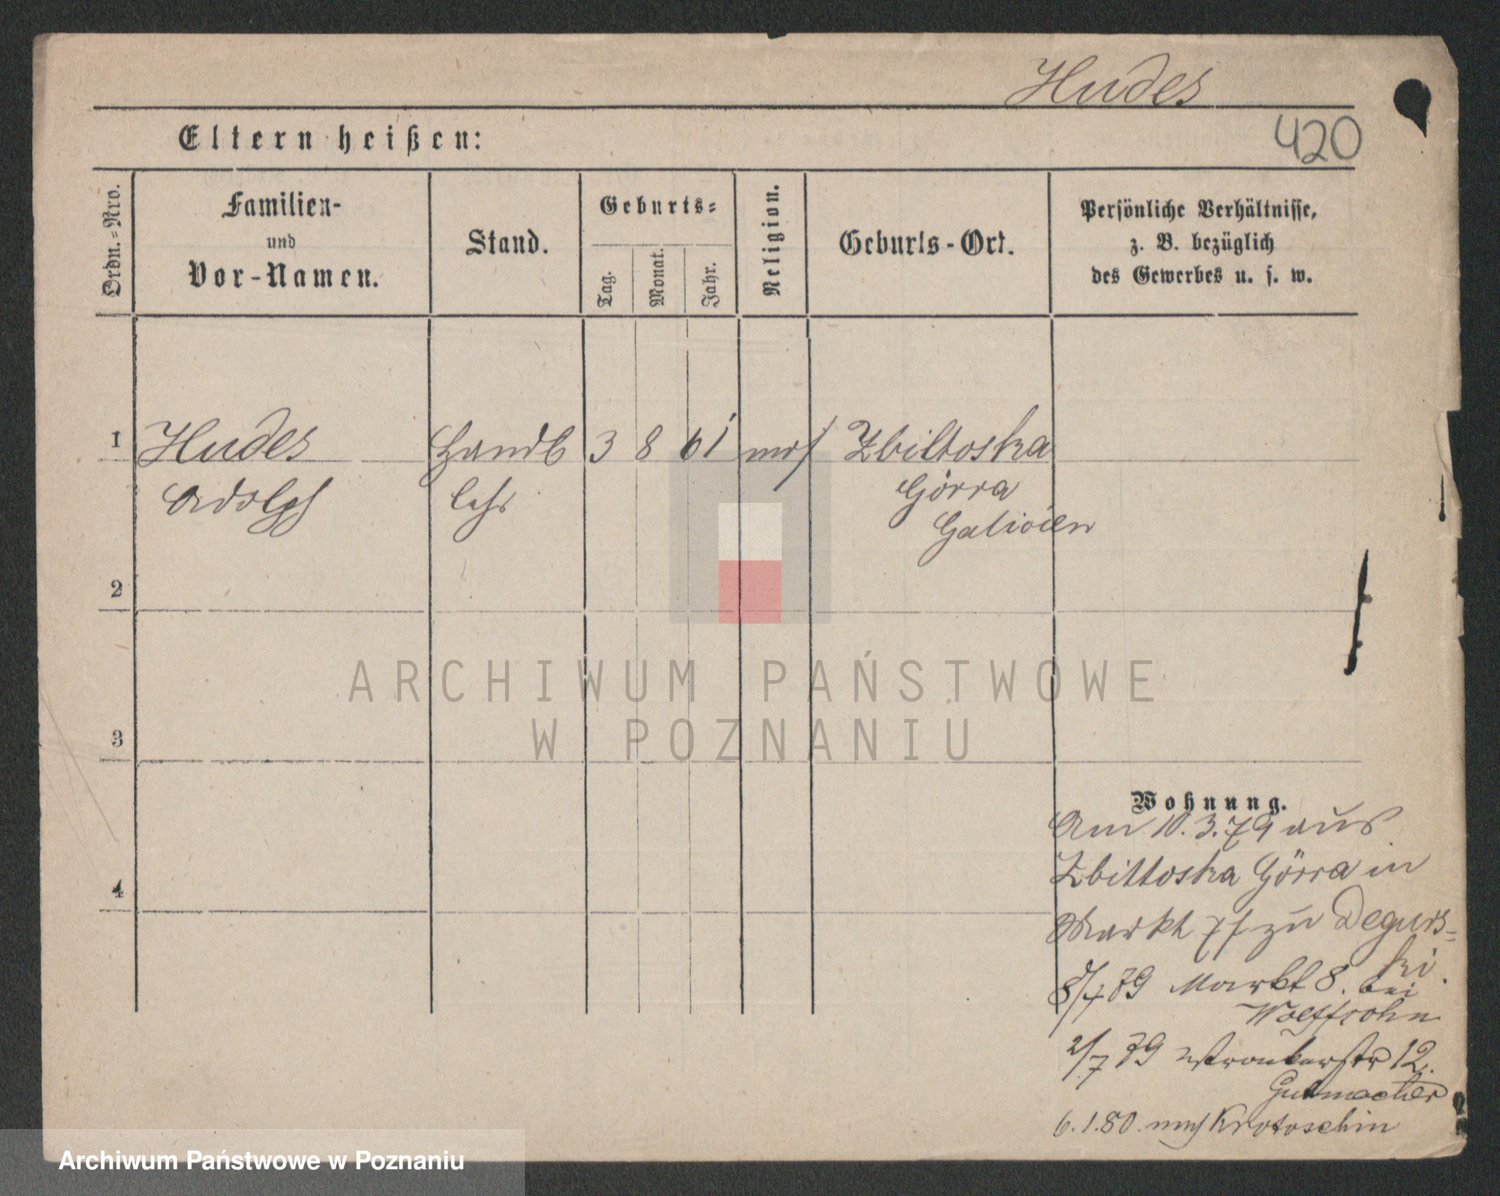 Hudes
Eltern heißen:
420
Ordn.-Nro.
Familien-
und
Vor-Namen.
Stand.
Geburts-
Tag.
Monat.
Jahr.
Religion.
Geburts-Ort.
Persönliche Verhältnisse,
z. B. bezüglich
des Gewerbes u. s. w.
1
Hudes
Adolph
Handl
lehr
3
8
61
mos
Zbittoska
Görra
Galicien
2
3
4
Wohnung.
Am 10.3.79 aus
Zbittoska Görra in
Markt zu Degurs-
ki.
79 Markt 8. bei
Wolffsohn
2/7 79 Wronkerstr 12.
Gutmacher
6.1.80. nach Krotoschin
ARCHIWUM PAŃSTWOWE
W POZNANIU
Archiwum Państwowe w Poznaniu